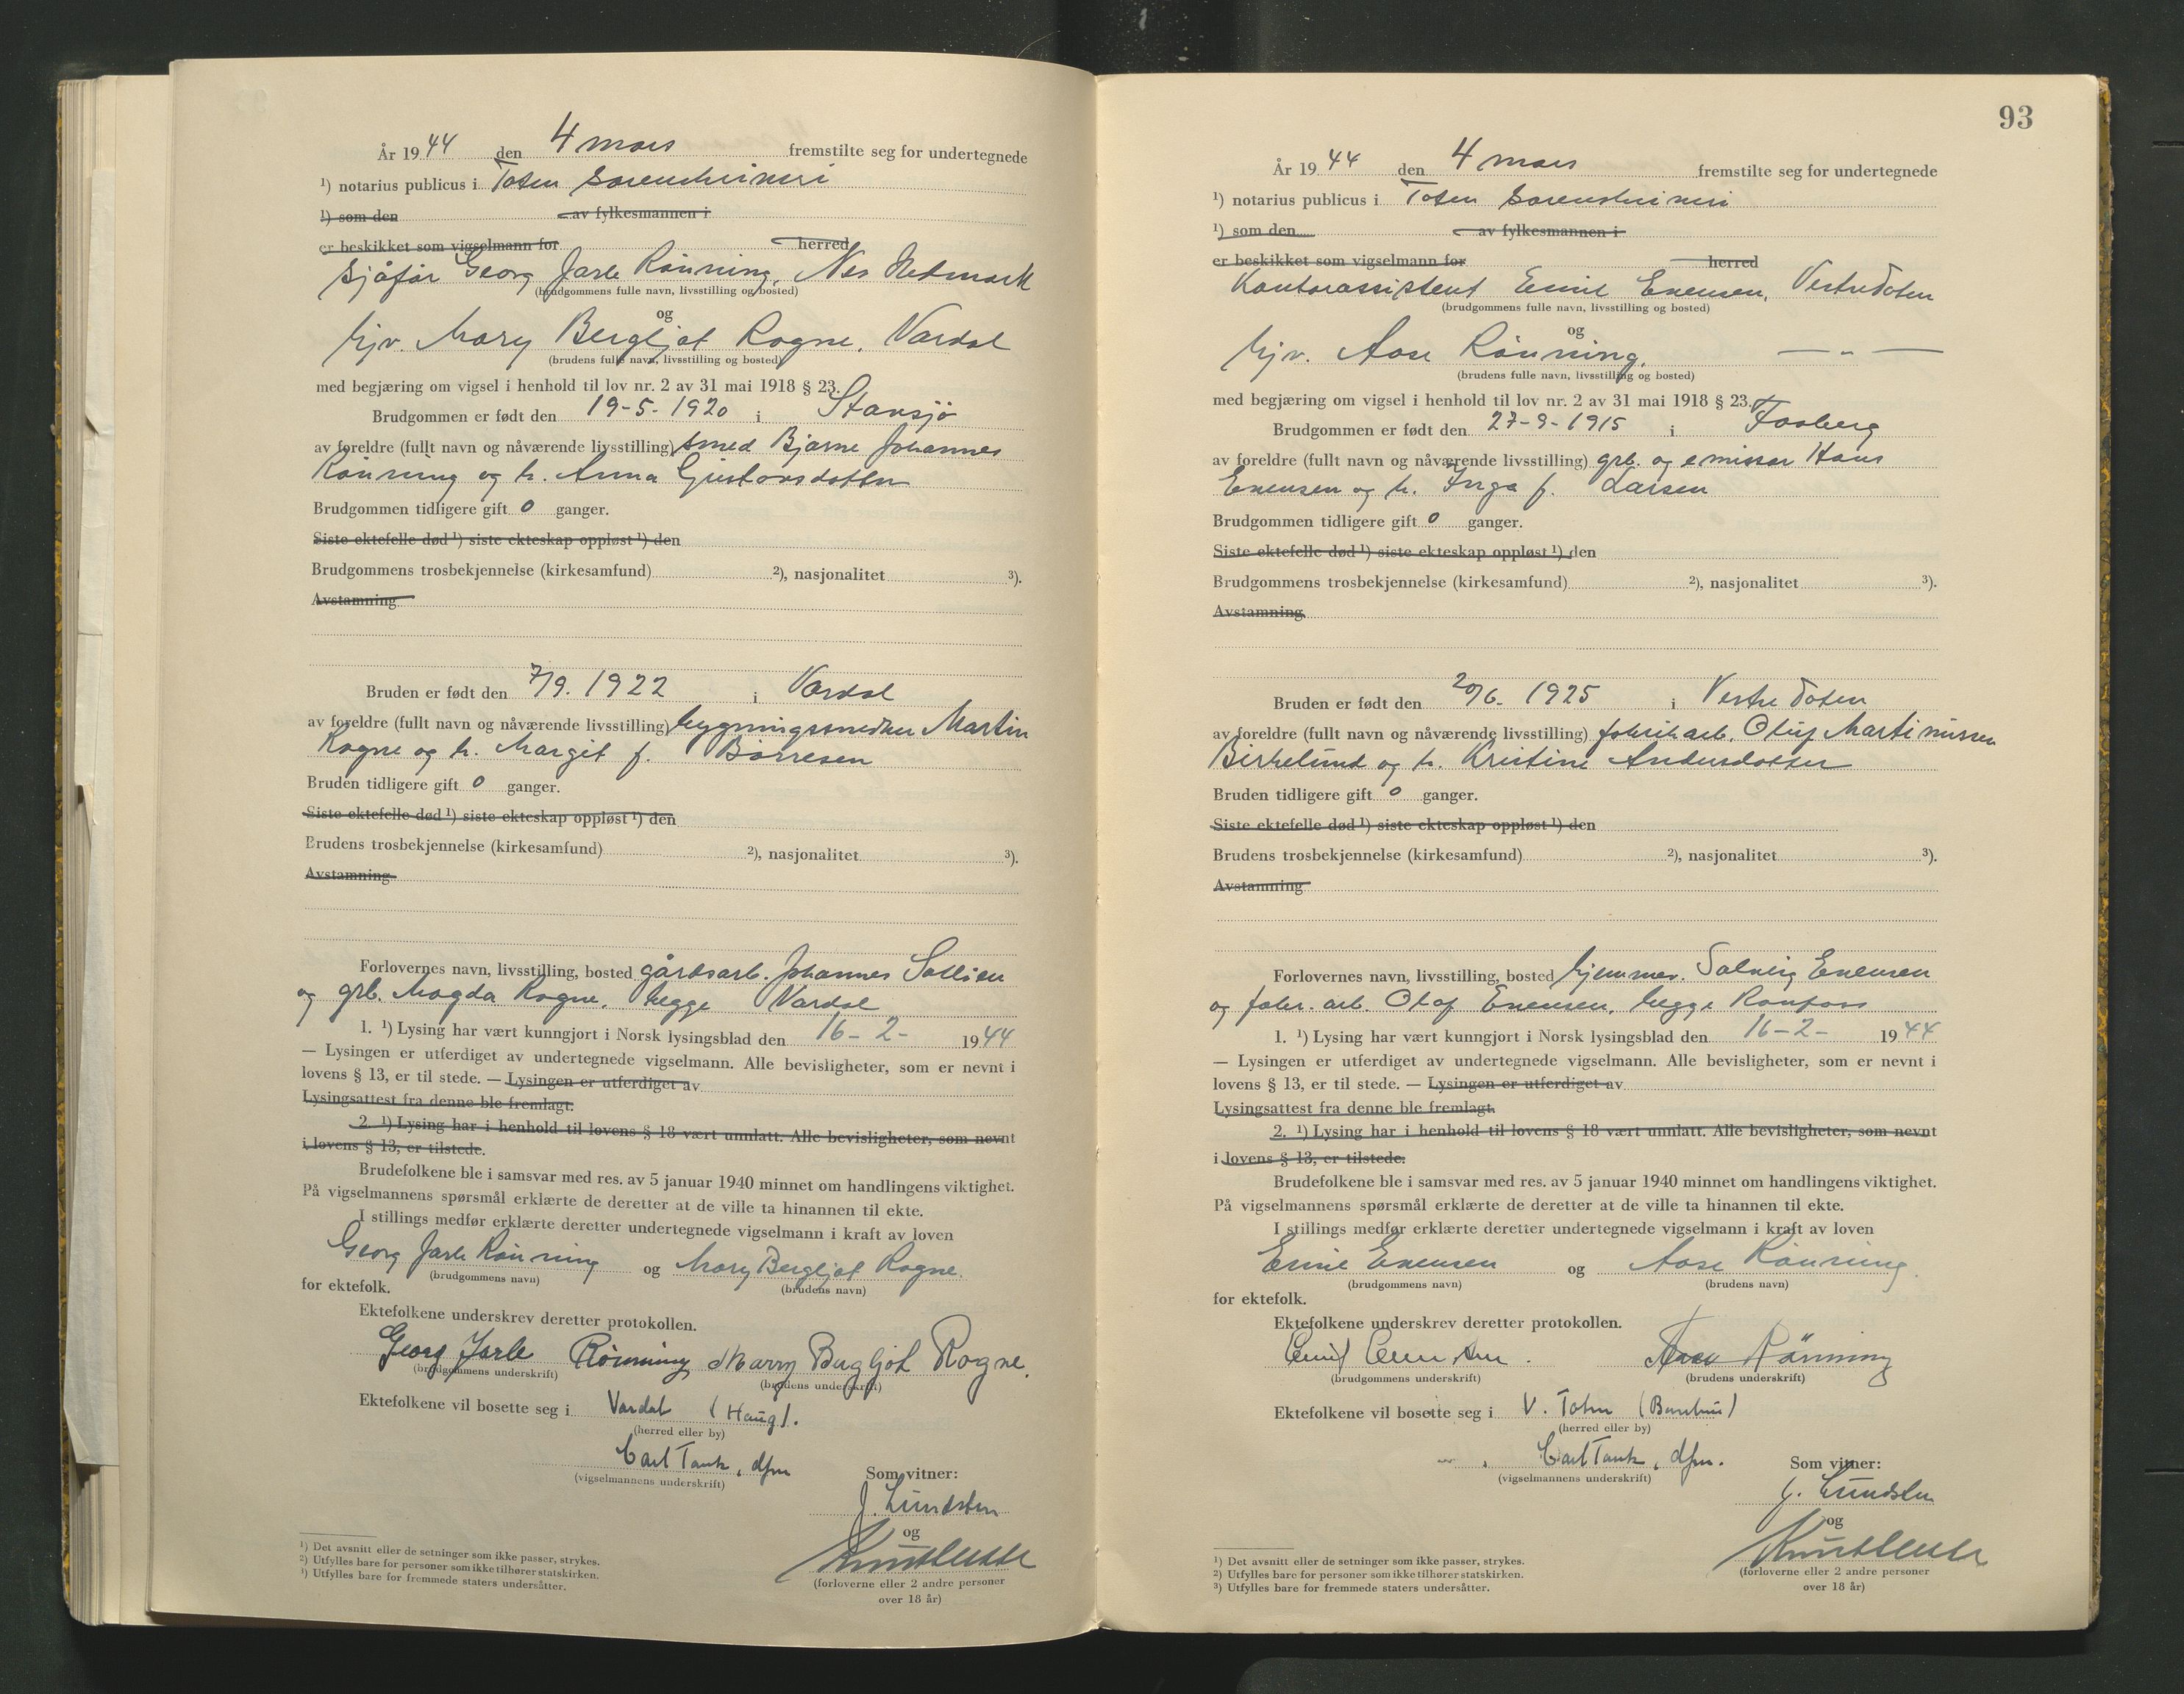 År 1944 den 4 mars fremstilte seg for undertegnede
¹) notarius publicus i Toten sorenskriveri
¹) som den av fylkesmannen i
er beskikket som vigselmann for herred
Sjåfør Georg Jarle Rönning, Nes Hedmark
(brudgommens fulle navn, livsstilling og bosted)
og
hjv. Mary Bergljot Rogne, Vardal
(brudens fulle navn, livsstilling og bosted)
med begjæring om vigsel i henhold til lov nr. 2 av 31 mai 1918 § 23.
Brudgommen er født den 19-5-1920 i Stavsjø
av foreldre (fullt navn og nåværende livsstilling) smed Bjarne Johannes
Rönning og h. Anna Gustavsdatter
Brudgommen tidligere gift 0 ganger.
Siste ektefelle død ¹) siste ekteskap oppløst ¹) den
Brudgommens trosbekjennelse (kirkesamfund) ²), nasjonalitet ³).
Avstamning
Bruden er født den 7/9. 1922 i Vardal
av foreldre (fullt navn og nåværende livsstilling) bygningssnedker Martin
Rogne og h. Margit f. Börresen
Bruden tidligere gift 0 ganger.
Siste ektefelle død ¹) siste ekteskap oppløst ¹) den
Brudens trosbekjennelse (kirkesamfund) ²), nasjonalitet ³).
Avstamning
Forlovernes navn, livsstilling, bosted gårdsarb. Johannes
og grb. Magda Rogne, begge Vardal
1. ¹) Lysing har vært kunngjort i Norsk lysingsblad den 16-2- 1944
— Lysingen er utferdiget av undertegnede vigselmann. Alle bevisligheter, som er nevnt i
lovens § 13, er til stede. — Lysingen er utferdiget av
Lysingsattest fra denne ble fremlagt.
2. ¹) Lysing har i henhold til lovens § 18 vært unnlatt. Alle bevisligheter, som nevnt
i lovens § 13, er tilstede.
Brudefolkene ble i samsvar med res. av 5 januar 1940 minnet om handlingens viktighet.
På vigselmannens spørsmål erklærte de deretter at de ville ta hinannen til ekte.
I stillings medfør erklærte deretter undertegnede vigselmann i kraft av loven
Georg Jarle Rönning og Mary Bergljot Rogne.
(brudgommens navn) (brudens navn)
for ektefolk.
Ektefolkene underskrev deretter protokollen.
Georg Jarle Rönning Marry Bergljot Rogne.
(brudgommens underskrift) (brudens underskrift)
Ektefolkene vil bosette seg i Vardal (Haug).
(herred eller by)
Carl Tank, dfm
(vigselmannens underskrift)
Som vitner:
J. Lundsten
og
(forloverne eller 2 andre personer
over 18 år)
¹) Det avsnitt eller de setninger som ikke passer, strykes.
²) Utfylles bare for personer som ikke tilhører statskirken.
³) Utfylles bare for fremmede staters undersåtter.
93
År 1944 den 4 mars fremstilte seg for undertegnede
¹) notarius publicus i Toten sorenskriveri
¹) som den av fylkesmannen i
er beskikket som vigselmann for herred
Kontorassistent Emil Evensen, Vestre Toten
(brudgommens fulle navn, livsstilling og bosted)
og
hjv. Aase Rönning, — „ —
(brudens fulle navn, livsstilling og bosted)
med begjæring om vigsel i henhold til lov nr. 2 av 31 mai 1918 § 23.
Brudgommen er født den 27-9-1915 i Faaberg
av foreldre (fullt navn og nåværende livsstilling) grb. og emissær Hans
Evensen og h. Inga f. Larsen
Brudgommen tidligere gift 0 ganger.
Siste ektefelle død ¹) siste ekteskap oppløst ¹) den
Brudgommens trosbekjennelse (kirkesamfund) ²), nasjonalitet ³).
Avstamning
Bruden er født den 20/6. 1925 i Vestre Toten
av foreldre (fullt navn og nåværende livsstilling) fabrikarb. Oluf Martinussen
Birkelund og h. Kristine Andersdatter
Bruden tidligere gift 0 ganger.
Siste ektefelle død ¹) siste ekteskap oppløst ¹) den
Brudens trosbekjennelse (kirkesamfund) ²), nasjonalitet ³).
Avstamning
Forlovernes navn, livsstilling, bosted hjemmev. Solveig Evensen
og fabr. arb. Olaf Evensen, begge Raufoss
1. ¹) Lysing har vært kunngjort i Norsk lysingsblad den 16-2- 1944
— Lysingen er utferdiget av undertegnede vigselmann. Alle bevisligheter, som er nevnt i
lovens § 13, er til stede. — Lysingen er utferdiget av
Lysingsattest fra denne ble fremlagt.
2. ¹) Lysing har i henhold til lovens § 18 vært unnlatt. Alle bevisligheter, som nevnt
i lovens § 13, er tilstede.
Brudefolkene ble i samsvar med res. av 5 januar 1940 minnet om handlingens viktighet.
På vigselmannens spørsmål erklærte de deretter at de ville ta hinannen til ekte.
I stillings medfør erklærte deretter undertegnede vigselmann i kraft av loven
Emil Evensen og Aase Rönning.
(brudgommens navn) (brudens navn)
for ektefolk.
Ektefolkene underskrev deretter protokollen.
Emil Evensen. Aase Rönning
(brudgommens underskrift) (brudens underskrift)
Ektefolkene vil bosette seg i V. Toten
(herred eller by)
Carl Tank, dfm.
(vigselmannens underskrift)
Som vitner:
J. Lundsten
og
(forloverne eller 2 andre personer
over 18 år)
¹) Det avsnitt eller de setninger som ikke passer, strykes.
²) Utfylles bare for personer som ikke tilhører statskirken.
³) Utfylles bare for fremmede staters undersåtter.